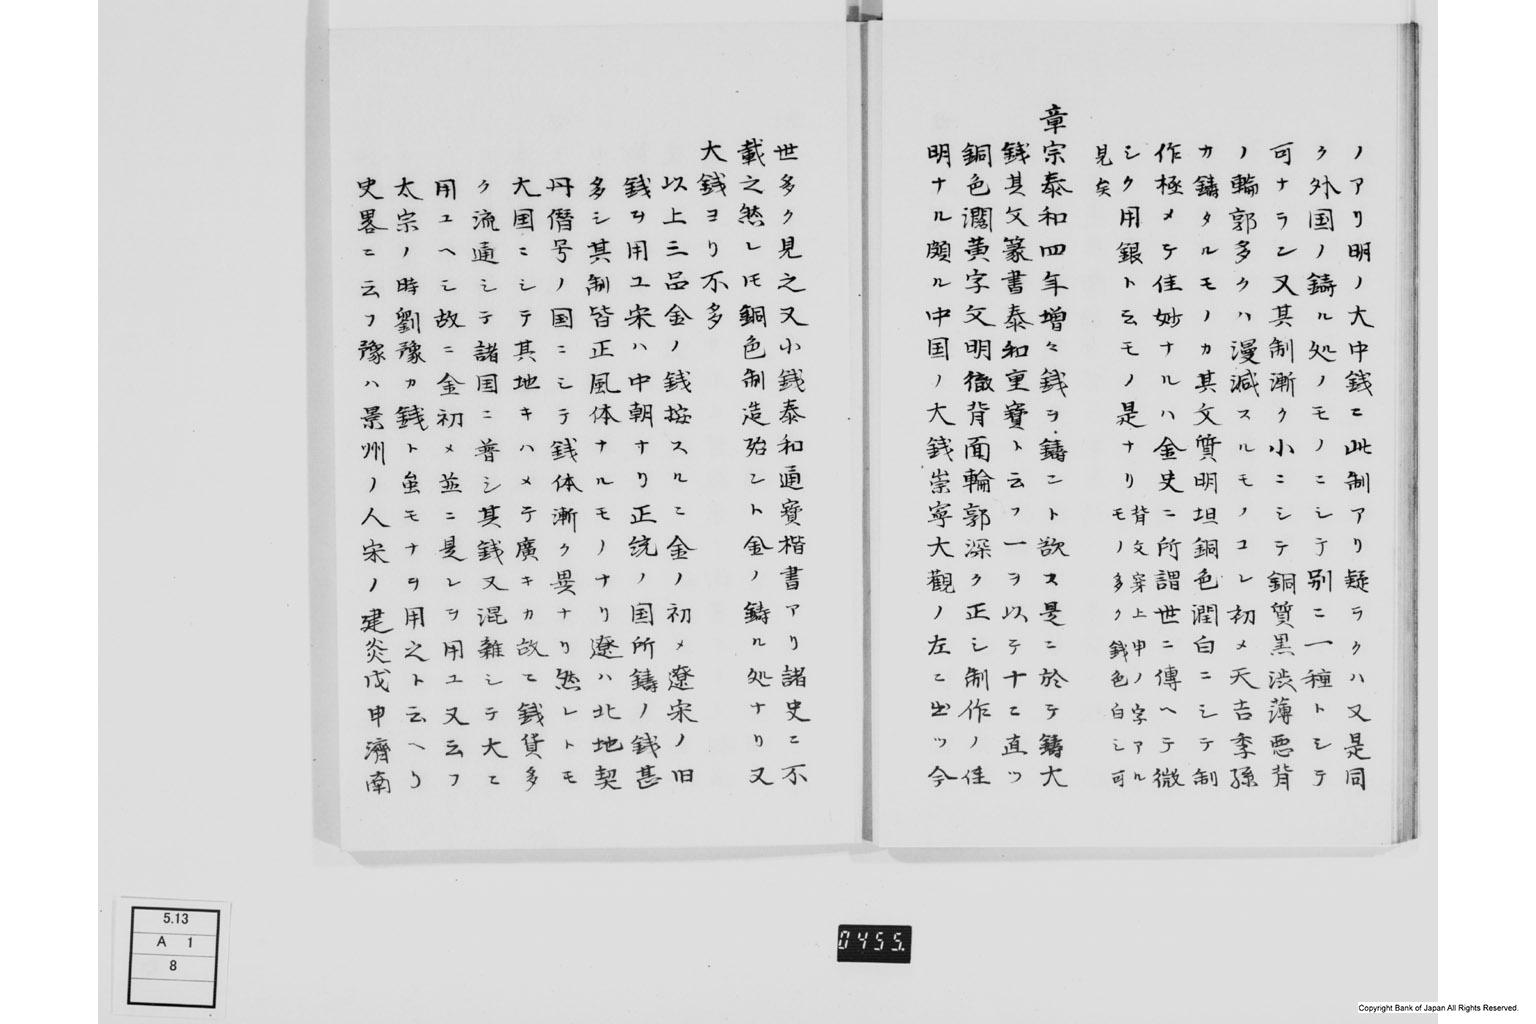 ノアリ明ノ大中銭ニ此制アリ疑ラクハ又是同
ク外国ノ鋳ル処ノモノニシテ別ニ一種トシテ
可ナラン又其制漸ク小ニシテ銅質黒渋薄悪背
ノ輪郭多クハ漫滅スルモノコレ初メ天吉李孫
カ鋳タルモノカ其文質明坦銅色潤白ニシテ制
作極メテ佳妙ナルハ金史ニ所謂世ニ傳ヘテ微
シク用銀ト云モノ是ナリ背文穿上申ノ字アル
モノ多ク銭色白シ可
見矣
章宗泰和四年増々銭ヲ鋳ント欲ス是ニ於テ鋳大
銭其文篆書泰和重寳ト云フ一ヲ以テ十ニ直ツ
銅色濶黄字文明徹背面輪郭深ク正シ制作ノ佳
明ナル頗ル中国ノ大銭崇寧大觀ノ左ニ出ツ今
世多ク見之又小銭泰和通寳楷書アリ諸史ニ不
載之然レ𪜈銅色制造殆ント金ノ鋳ル処ナリ又
大銭ヨリ不多
以上三品金ノ銭按スルニ金ノ初メ遼宋ノ旧
銭ヲ用ユ宋ハ中朝ナリ正統ノ国所鋳ノ銭甚
多シ其制皆正風体ナルモノナリ遼ハ北地契
丹僭号ノ国ニシテ銭体漸ク異ナリ然レトモ
大国ニシテ其地キハメテ廣キカ故ニ銭貨多
ク流通シテ諸国ニ普シ其銭又混雑シテ大ニ
用ユヘシ故ニ金初メ並ニ是レヲ用ユ又云フ
太宗ノ時劉豫カ銭ト虽モナヲ用之ト云ヘリ
史畧ニ云フ豫ハ景州ノ人宋ノ建炎戊申濟南
5.13
A 1
8
0455.
Copyright Bank of Japan All Rights Reserved.